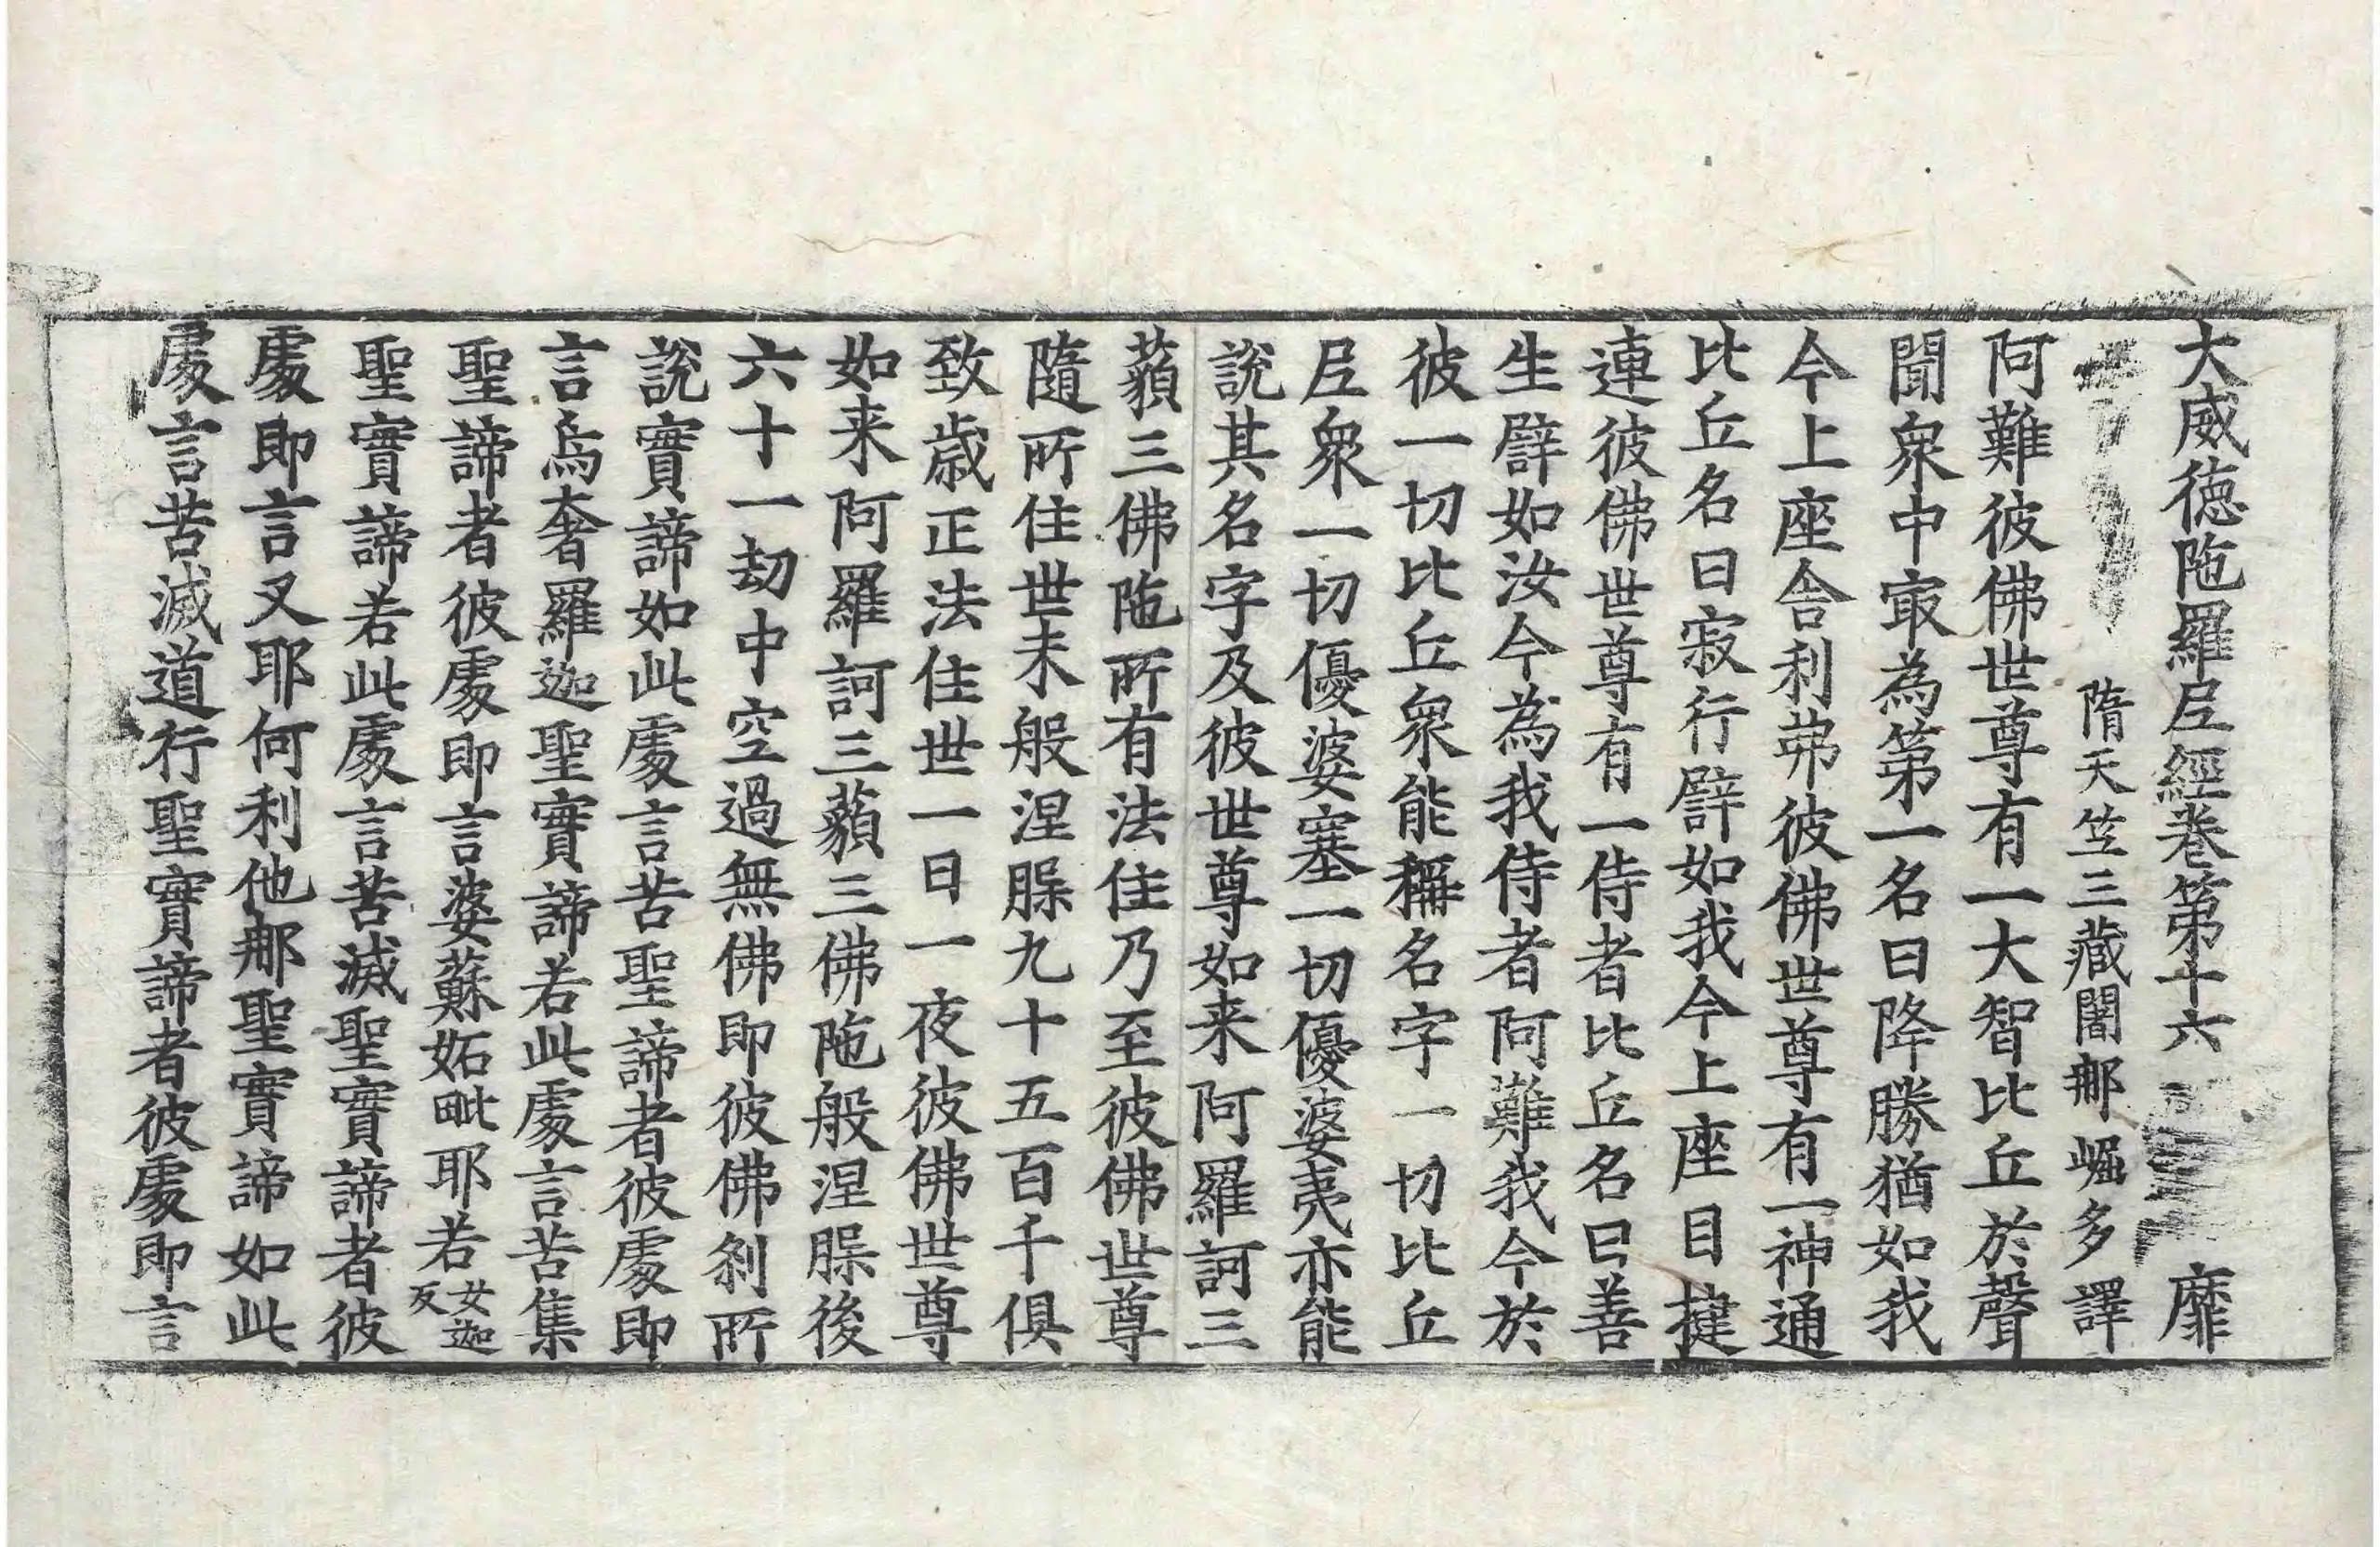 大威徳陁羅𡰱經卷第十六 靡
隋天笠三藏闍𨚗崛多譯
阿難彼佛世尊有一大智比丘於聲
聞衆中㝡為第一名曰降勝猶如我
今上座舎利弗彼佛世尊有一神通
比丘名曰寂行譬如我今上座目揵
連彼佛世尊有一侍者比丘名曰善
生譬如汝今為我侍者阿難我今於
彼一切比丘衆能稱名字一切比丘
𡰱衆一切優婆塞一切優婆夷亦能
說其名字及彼世尊如来阿羅訶三
藐三佛陁所有法住乃至彼佛世尊
隨所住世未般涅槃九十五百千俱
致歲正法住世一日一夜彼佛世尊
如来阿羅訶三藐三佛陁般涅槃後
六十一劫中空過無佛即彼佛剎所
說實諦如此處言苦聖諦者彼處即
言烏奢羅迦聖實諦若此處言苦集
聖諦者彼處即言婆蘇妬毗耶若女迦反
聖實諦若此處言苦滅聖實諦者彼
處即言叉耶何利他𨚗聖實諦如此
處言苦滅道行聖實諦者彼處即言